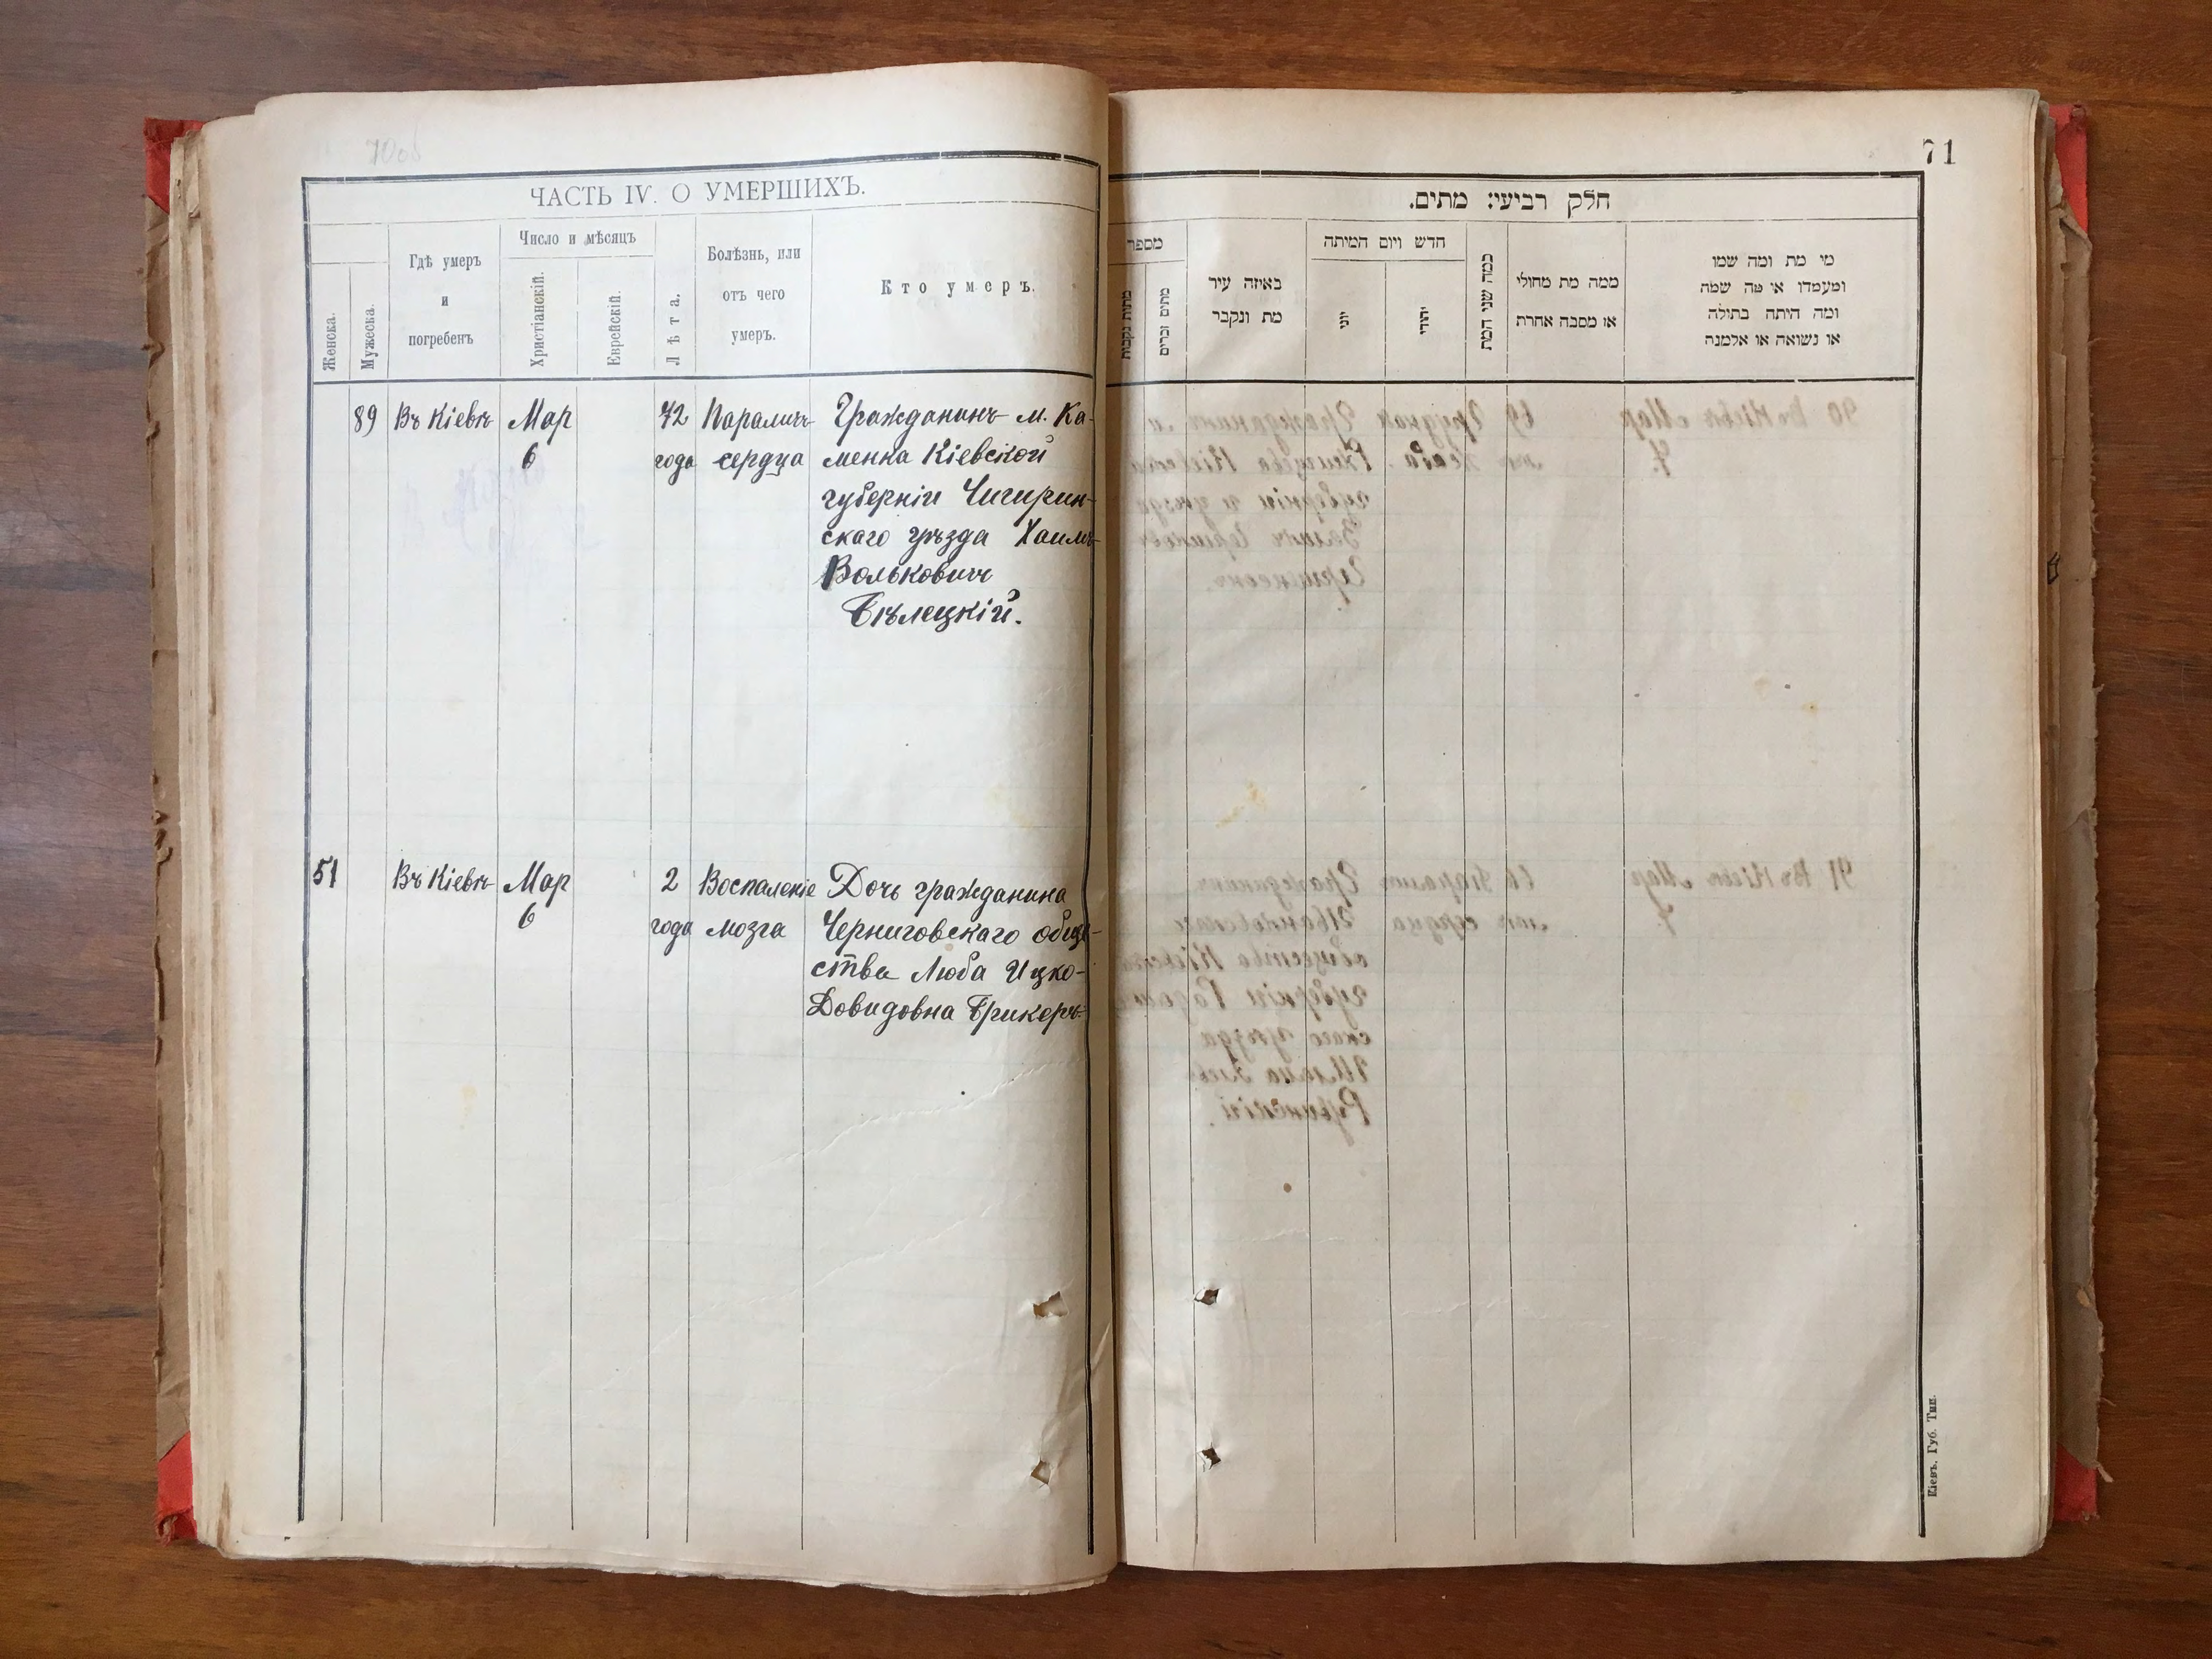 70об
ЧАСТЬ IV. О УМЕРШИХЪ.
Женска.
Мужеска.
Гдѣ умеръ
и
погребенъ
Число и мѣсяцъ
Христіанскій.
Еврейскій.
Лѣта.
Болѣзнь, или
отъ чего
умеръ.
Кто умеръ.
89
Въ Кіевѣ
Мар
6
72
года
Параличъ
сердца
Гражданинъ м. Ка-
менка Кіевской
губерніи Чигирин-
скаго уѣзда Хаимъ
Вольковичъ
Бѣлецкій.
51
Въ Кіевѣ
Мар
6
2
года
Воспаленіе
мозга
Дочь гражданина
Черниговскаго обще-
ства Люба Ицко-
Довидовна Брикеръ.
71
חלק רביעי: מתים.
מספר
מתות נקבות
מתים זכרים
באיזה עיר
מת ונקבר
חדש ויום המיתה
יוני
יהודי
כמה שני המת
ממה מת מחולי
או מסבה אחרת
מי מת ומה שמו
ומעמדו או מה שמה
ומה היתה בתולה
או נשואה או אלמנה
Кіевъ, Губ. Тип.